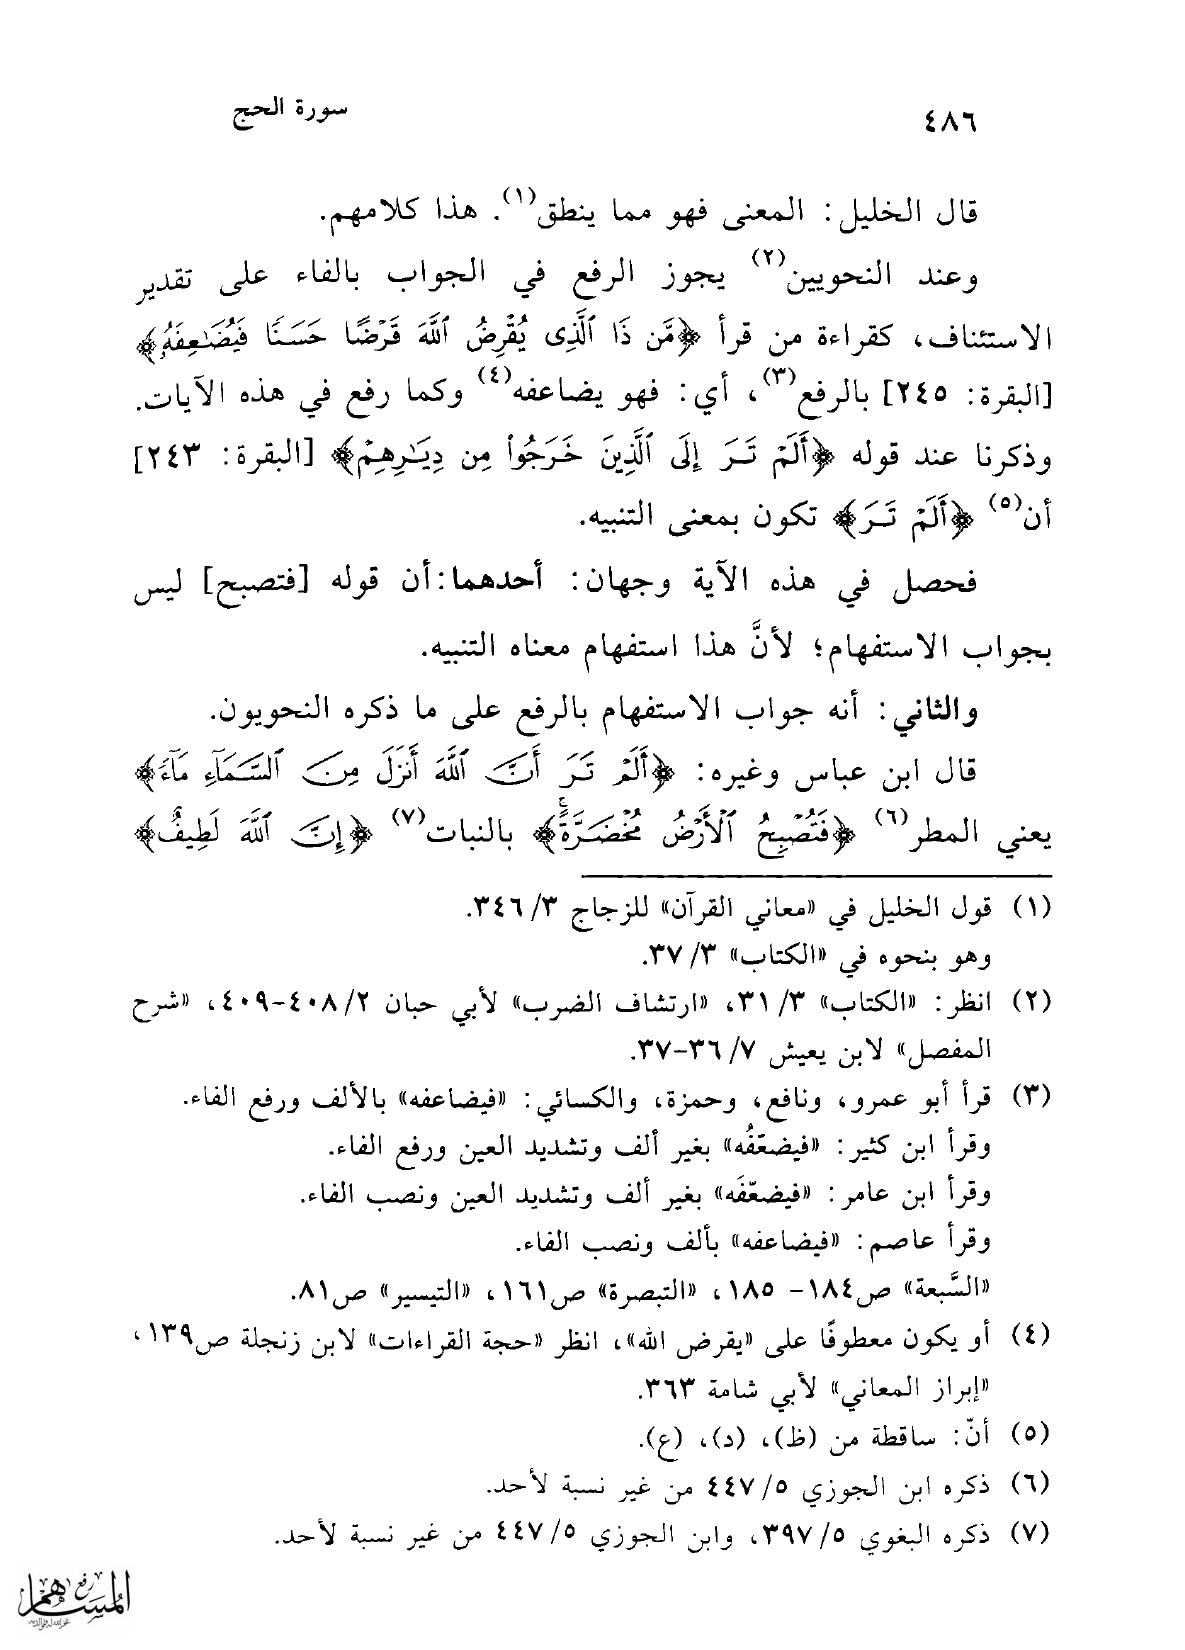 ٤٨٦ سورة الحج
قال الخليل: المعنى فهو مما ينطق(١). هذا كلامهم.
وعند النحويين(٢) يجوز الرفع في الجواب بالفاء على تقدير
الاستئناف، كقراءة من قرأ ﴿مَّن ذَا ٱلَّذِى يُقْرِضُ ٱللَّهَ قَرْضًا حَسَنًا فَيُضَٰعِفَهُۥ﴾
[البقرة: ٢٤٥] بالرفع(٣)، أي: فهو يضاعفه(٤) وكما رفع في هذه الآيات.
وذكرنا عند قوله ﴿أَلَمْ تَرَ إِلَى ٱلَّذِينَ خَرَجُوا۟ مِن دِيَٰرِهِمْ﴾ [البقرة: ٢٤٣]
أن(٥) ﴿أَلَمْ تَرَ﴾ تكون بمعنى التنبيه.
فحصل في هذه الآية وجهان: أحدهما:أن قوله [فتصبح] ليس
بجواب الاستفهام؛ لأنَّ هذا استفهام معناه التنبيه.
والثاني: أنه جواب الاستفهام بالرفع على ما ذكره النحويون.
قال ابن عباس وغيره: ﴿أَلَمْ تَرَ أَنَّ ٱللَّهَ أَنزَلَ مِنَ ٱلسَّمَآءِ مَآءً﴾
يعني المطر(٦) ﴿فَتُصْبِحُ ٱلْأَرْضُ مُخْضَرَّةً ۚ﴾ بالنبات(٧) ﴿إِنَّ ٱللَّهَ لَطِيفٌ﴾
(١) قول الخليل في «معاني القرآن» للزجاج ٣/ ٣٤٦.
وهو بنحوه في «الكتاب» ٣/ ٣٧.
(٢) انظر: «الكتاب» ٣/ ٣١، «ارتشاف الضرب» لأبي حبان ٢/ ٤٠٨-٤٠٩، «شرح
المفصل» لابن يعيش ٧/ ٣٦-٣٧.
(٣) قرأ أبو عمرو، ونافع، وحمزة، والكسائي: «فيضاعفه» بالألف ورفع الفاء.
وقرأ ابن كثير: «فيضعّفُه» بغير ألف وتشديد العين ورفع الفاء.
وقرأ ابن عامر: «فيضعّفَه» بغير ألف وتشديد العين ونصب الفاء.
وقرأ عاصم: «فيضاعفه» بألف ونصب الفاء.
«السَّبعة» ص١٨٤- ١٨٥، «التبصرة» ص١٦١، «التيسير» ص٨١.
(٤) أو يكون معطوفًا على «يقرض الله»، انظر «حجة القراءات» لابن زنجلة ص١٣٩،
«إبراز المعاني» لأبي شامة ٣٦٣.
(٥) أنّ: ساقطة من (ظ)، (د)، (ع).
(٦) ذكره ابن الجوزي ٥/ ٤٤٧ من غير نسبة لأحد.
(٧) ذكره البغوي ٥/ ٣٩٧، وابن الجوزي ٥/ ٤٤٧ من غير نسبة لأحد.